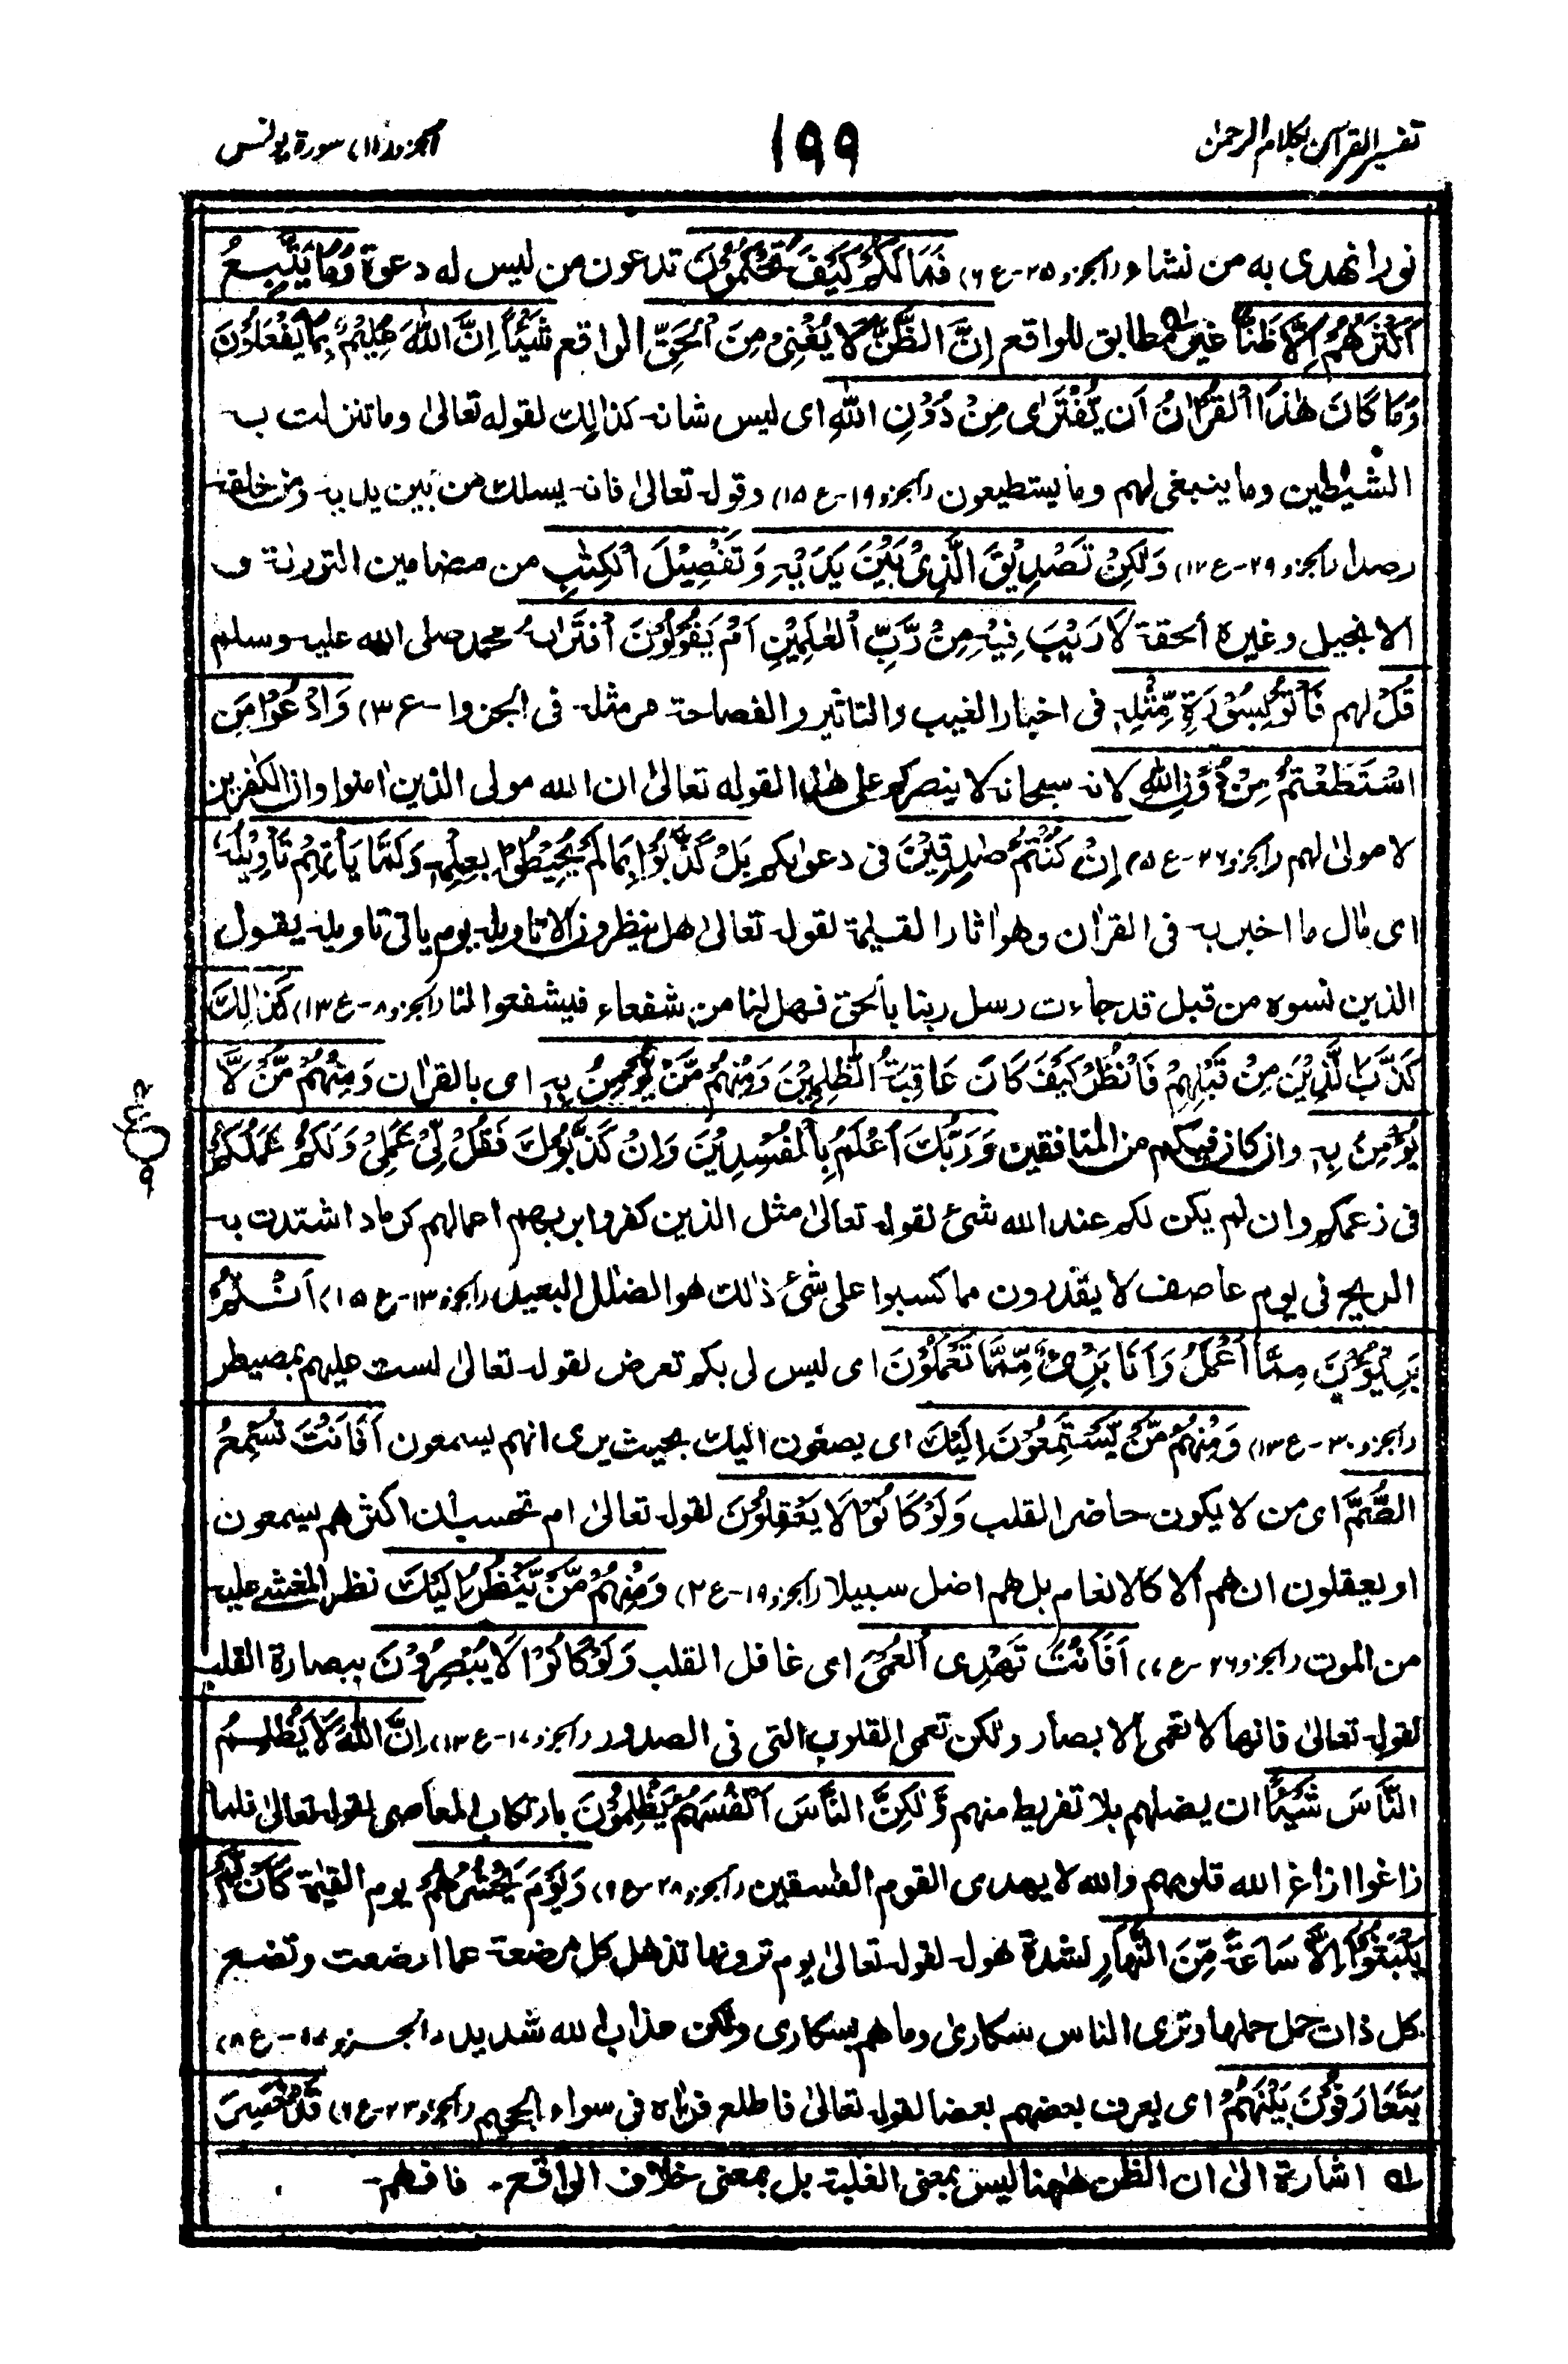 تفسير القرآن بكلام الرحمن
١٩٩
الجزو (١١) سورة يونس
نورا نهدى به من نشاء (الجزو ٢٥-ع ٦) فَمَا لَكُمْ كَيْفَ تَحْكُمُوْنَ تدعون من ليس له دعوة وَمَا يَتَّبِعُ
اَكْثَرُهُمْ اِلَّا ظَنًّا غير مطابق للواقع اِنَّ الظَّنَّ لَا يُغْنِىْ مِنَ الْحَقِّ الواقع شَيْئًا اِنَّ اللّٰهَ عَلِيْمٌۢ بِمَا يَفْعَلُوْنَ
وَمَا كَانَ هٰذَا الْقُرْاٰنُ اَنْ يُّفْتَرٰى مِنْ دُوْنِ اللّٰهِ اى ليس شانه كذالك لقوله تعالىٰ وما تنزلت به
الشيٰطين وما ينبغى لهم وما يستطيعون (الجزو ١٩-ع ١٥) وقوله تعالىٰ فانه يسلك من بين يديه ومن خلفه
رصدا (الجزو ٢٩-ع ١٢) وَلٰكِنْ تَصْدِيْقَ الَّذِىْ بَيْنَ يَدَيْهِ وَتَفْصِيْلَ الْكِتٰبِ من مضامين التورٰىة و
الانجيل وغيره الحقة لَا رَيْبَ فِيْهِ مِنْ رَّبِّ الْعٰلَمِيْنَ اَمْ يَقُوْلُوْنَ افْتَرٰىهُ محمد صلى الله عليه وسلم
قُلْ لهم فَأْتُوْا بِسُوْرَةٍ مِّثْلِهٖ فى اخبار الغيب والتاثير والفصاحة مر مثله فى الجزو ١-ع ٣) وَادْعُوْا مَنِ
اسْتَطَعْتُمْ مِنْ دُوْنِ اللّٰهِ لانه سبحانه لا ينصركم على هذا لقوله تعالىٰ ان الله مولى الذين اٰمنوا وان الكٰفرين
لا مولىٰ لهم (الجزو ٢٦-ع ٥) اِنْ كُنْتُمْ صٰدِقِيْنَ فى دعوٰىكم بَلْ كَذَّبُوْا بِمَا لَمْ يُحِيْطُوْا بِعِلْمِهٖ وَلَمَّا يَأْتِهِمْ تَأْوِيْلُهٗ
اى مٰال ما اخبر به فى القرٰان وهو اٰثار القيٰمة لقوله تعالىٰ هل ينظرون الا تاويله يوم ياتى تاويله يقول
الذين نسوه من قبل قد جاءت رسل ربنا بالحق فهل لنا من شفعاء فيشفعوا لنا (الجزو ٨-ع ١٣) كَذٰلِكَ
كَذَّبَ الَّذِيْنَ مِنْ قَبْلِهِمْ فَانْظُرْ كَيْفَ كَانَ عَاقِبَةُ الظّٰلِمِيْنَ وَمِنْهُمْ مَّنْ يُّؤْمِنُ بِهٖ اى بالقرٰان وَمِنْهُمْ مَّنْ لَّا
يُؤْمِنُ بِهٖ وان كان فيكم من المنافقين وَرَبُّكَ اَعْلَمُ بِالْمُفْسِدِيْنَ وَاِنْ كَذَّبُوْكَ فَقُلْ لِّىْ عَمَلِىْ وَلَكُمْ عَمَلُكُمْ
فى زعمكم وان لم يكن لكم عند الله شىء لقوله تعالىٰ مثل الذين كفروا بربهم اعمالهم كرماد اشتدت به
الريح فى يوم عاصف لا يقدرون مما كسبوا على شىء ذٰلك هو الضلٰل البعيد (الجزو ١٣-ع ١٥) اَنْتُمْ
بَرِيْٓـُٔوْنَ مِمَّا اَعْمَلُ وَاَنَا بَرِىْءٌ مِّمَّا تَعْمَلُوْنَ اى ليس لى بكم تعرض لقوله تعالىٰ لست عليهم بمصيطر
(الجزو ٣٠-ع ١٣) وَمِنْهُمْ مَّنْ يَّسْتَمِعُوْنَ اِلَيْكَ اى يصغون اليك بحيث يرى انهم يسمعون اَفَاَنْتَ تُسْمِعُ
الصُّمَّ اى من لا يكون حاضر القلب وَلَوْ كَانُوْا لَا يَعْقِلُوْنَ لقوله تعالىٰ ام تحسب ان اكثرهم يسمعون
او يعقلون ان هم الا كالانعام بل هم اضل سبيلا (الجزو ١٩-ع ٢) وَمِنْهُمْ مَّنْ يَّنْظُرُ اِلَيْكَ نظر المغشى عليه
من الموت (الجزو ٢٦-ع ٧) اَفَاَنْتَ تَهْدِى الْعُمْىَ اى غافل القلب وَلَوْ كَانُوْا لَا يُبْصِرُوْنَ ببصارة القلب
لقوله تعالىٰ فانها لا تعمى الابصار ولكن تعمى القلوب التى فى الصدور (الجزو ١٧-ع ١٣) اِنَّ اللّٰهَ لَا يَظْلِمُ
النَّاسَ شَيْئًا ان يضلهم بلا تفريط منهم وَّلٰكِنَّ النَّاسَ اَنْفُسَهُمْ يَظْلِمُوْنَ بارتكاب المعاصى لقوله تعالىٰ فلما
زاغوا ازاغ الله قلوبهم والله لا يهدى القوم الفٰسقين (الجزو ٢٨-ع ٩) وَيَوْمَ يَحْشُرُهُمْ يوم القيٰمة كَاَنْ لَّمْ
يَلْبَثُوْا اِلَّا سَاعَةً مِّنَ النَّهَارِ لشدة هوله لقوله تعالىٰ يوم ترونها تذهل كل مرضعة عما ارضعت وتضع
كل ذات حمل حملها وترى الناس سكارىٰ وما هم بسكارى ولكن عذاب الله شديد (الجزو ١٧-ع ٨)
يَتَعَارَفُوْنَ بَيْنَهُمْ اى يعرف بعضهم بعضا لقوله تعالىٰ فاطلع فراٰه فى سواء الجحيم (الجزو ٢٣-ع ٦) قَدْ خَسِرَ
لـه اشارة الىٰ ان الظن هٰهنا ليس بمعنى الغلبة بل بمعنى خلاف الواقع۔ فافهم۔